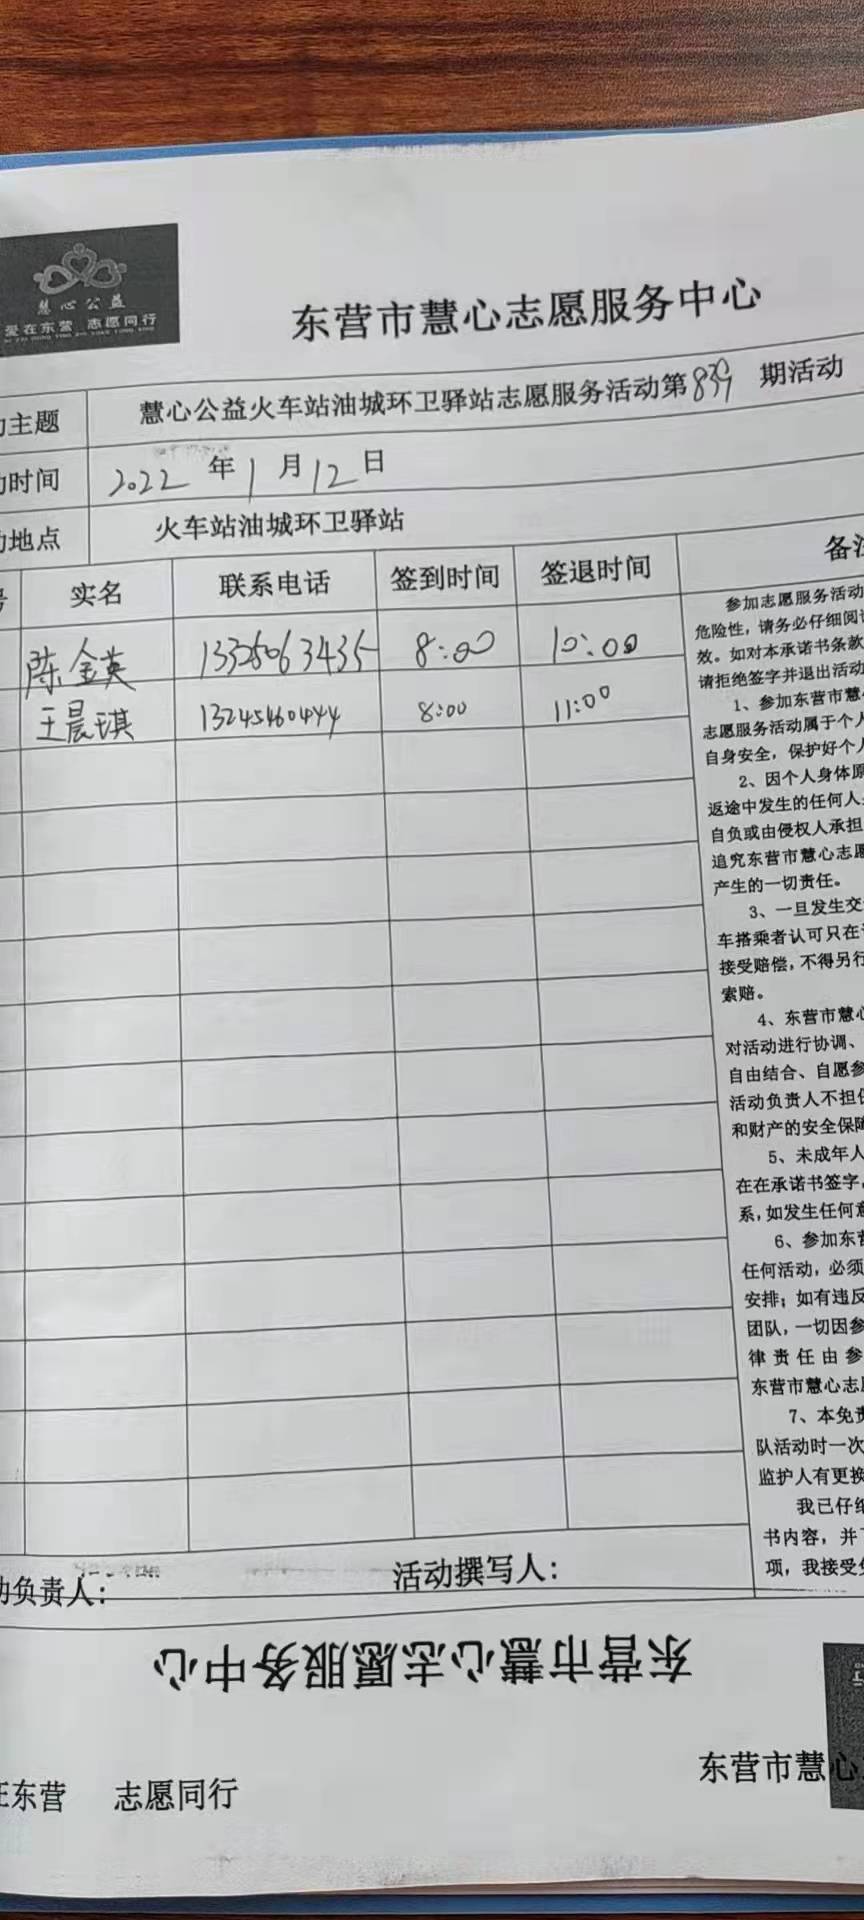 慧心公益
爱在东营 志愿同行
东营市慧心志愿服务中心
主题 慧心公益火车站油城环卫驿站志愿服务活动第839期活动
动时间 2022年1月12日
动地点 火车站油城环卫驿站
号 实名 联系电话 签到时间 签退时间 备注
陈金英 8:00 10:00
王晨琪 13245460444 8:00 11:00
参加志愿服务活动
危险性，请务必仔细阅读
效。如对本承诺书条款
请拒绝签字并退出活动
1、参加东营市慧心
志愿服务活动属于个人
自身安全，保护好个人
2、因个人身体原
返途中发生的任何人
自负或由侵权人承担
追究东营市慧心志愿
产生的一切责任。
3、一旦发生交
车搭乘者认可只在
接受赔偿，不得另行
索赔。
4、东营市慧心
对活动进行协调、
自由结合、自愿参
活动负责人不担
和财产的安全保障
5、未成年人
在在承诺书签字，
系，如发生任何意
6、参加东营
任何活动，必须
安排；如有违反
团队，一切因参
律责任由参
东营市慧心志愿
7、本免责
队活动时一次
监护人有更换
我已仔细
书内容，并
项，我接受免
动负责人： 活动撰写人：
东营市慧心志愿服务中心
在东营 志愿同行
东营市慧心